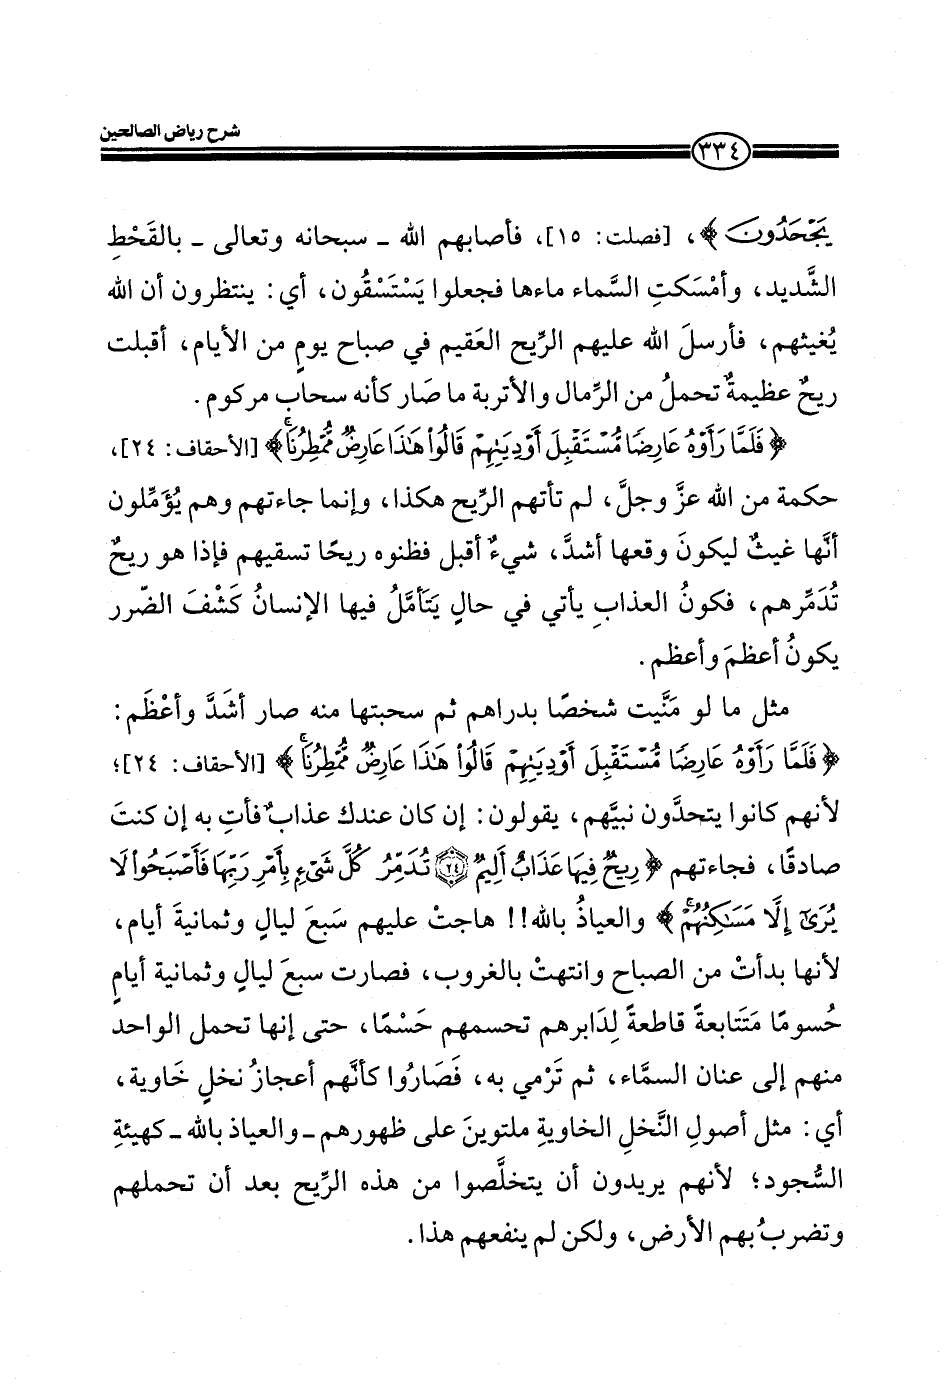 شرح رياض الصالحين
٣٣٤
يَجْحَدُونَ ﴾، [فصلت: ١٥]، فأصابهم الله ـ سبحانه وتعالى ـ بالقَحْطِ
الشَّديد، وأمْسَكتِ السَّماء ماءها فجعلوا يَسْتَسْقُون، أي: ينتظرون أن الله
يُغيثهم، فأرسلَ الله عليهم الرِّيح العَقيم في صباح يومٍ من الأيام، أقبلت
ريحٌ عظيمةٌ تحملُ من الرِّمال والأتربة ما صَار كأنه سحاب مركوم.
﴿ فَلَمَّا رَأَوْهُ عَارِضًا مُّسْتَقْبِلَ أَوْدِيَتِهِمْ قَالُوا۟ هَٰذَا عَارِضٌ مُّمْطِرُنَا ۚ﴾ [الأحقاف: ٢٤]،
حكمة من الله عزَّ وجلَّ، لم تأتهم الرِّيح هكذا، وإنما جاءتهم وهم يُؤَمِّلون
أنَّها غيثٌ ليكونَ وقعها أشدَّ، شيءٌ أقبل فظنوه ريحًا تسقيهم فإذا هو ريحٌ
تُدَمِّرهم، فكونُ العذابِ يأتي في حالٍ يَتَأمَّلُ فيها الإنسانُ كَشْفَ الضّرر
يكونُ أعظمَ وأعظم.
مثل ما لو مَنَّيت شخصًا بدراهم ثم سحبتها منه صار أشَدَّ وأعْظَم:
﴿ فَلَمَّا رَأَوْهُ عَارِضًا مُّسْتَقْبِلَ أَوْدِيَتِهِمْ قَالُوا۟ هَٰذَا عَارِضٌ مُّمْطِرُنَا ۚ﴾ [الأحقاف: ٢٤]؛
لأنهم كانوا يتحدَّون نبيَّهم، يقولون: إن كان عندك عذابٌ فأتِ به إن كنتَ
صادقًا، فجاءتهم ﴿ رِيحٌ فِيهَا عَذَابٌ أَلِيمٌ ۝٢٤ تُدَمِّرُ كُلَّ شَىْءٍ بِأَمْرِ رَبِّهَا فَأَصْبَحُوا۟ لَا
يُرَىٰٓ إِلَّا مَسَٰكِنُهُمْ ۚ ﴾ والعياذُ بالله!! هاجتْ عليهم سَبعَ ليالٍ وثمانيةَ أيام،
لأنها بدأتْ من الصباح وانتهتْ بالغروب، فصارت سبعَ ليالٍ وثمانية أيامٍ
حُسومًا مَتَتابعةً قاطعةً لِدَابرهم تحسمهم حَسْمًا، حتى إنها تحمل الواحد
منهم إلى عنان السمَّاء، ثم تَرْمي به، فَصَارُوا كأنَّهم أعجازُ نخلٍ خَاوية،
أي: مثل أصولِ النَّخلِ الخاويةِ ملتوينَ على ظهورهم ـ والعياذ بالله ـ كهيئةِ
السُّجود؛ لأنهم يريدون أن يتخلَّصوا من هذه الرِّيح بعد أن تحملهم
وتضربُ بهم الأرض، ولكن لم ينفعهم هذا.